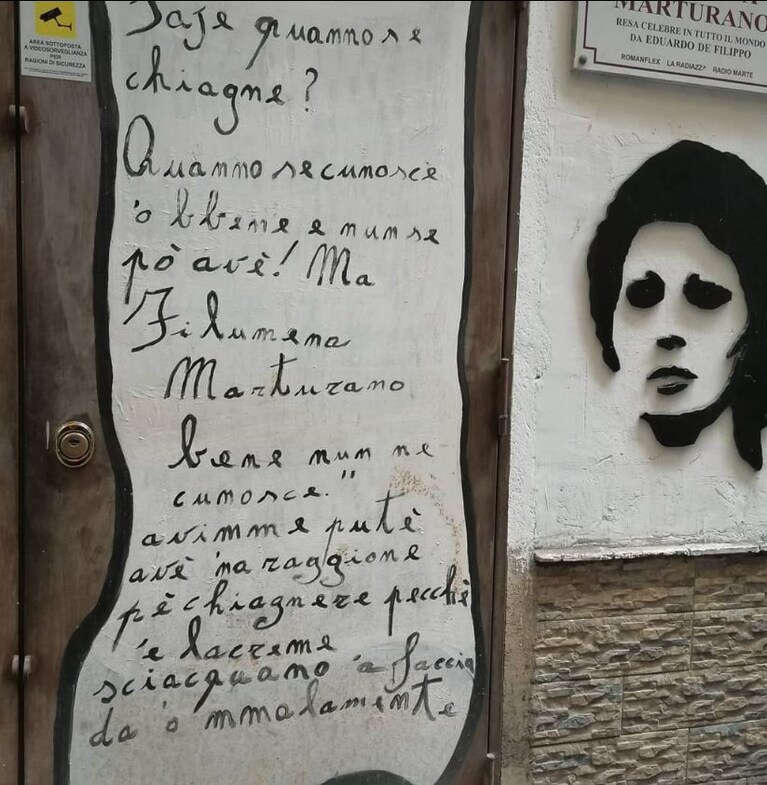 AREA SOTTOPOSTA
A VIDEOSORVEGLIANZA
PER
RAGIONI DI SICUREZZA
Saje quanno se
chiagne?
Quanno se cunosce
'o bbene e nun se
pò avè! Ma
Filumena
Marturano
bene nun ne
cunosce."
avimme putè
avè 'na raggione
pè chiagnere pecchè
'e lacreme
sciacquano 'a faccia
da 'o mmalamente
MARTURANO
RESA CELEBRE IN TUTTO IL MONDO
DA EDUARDO DE FILIPPO
ROMANFLEX LA RADIAZZA RADIO MARTE